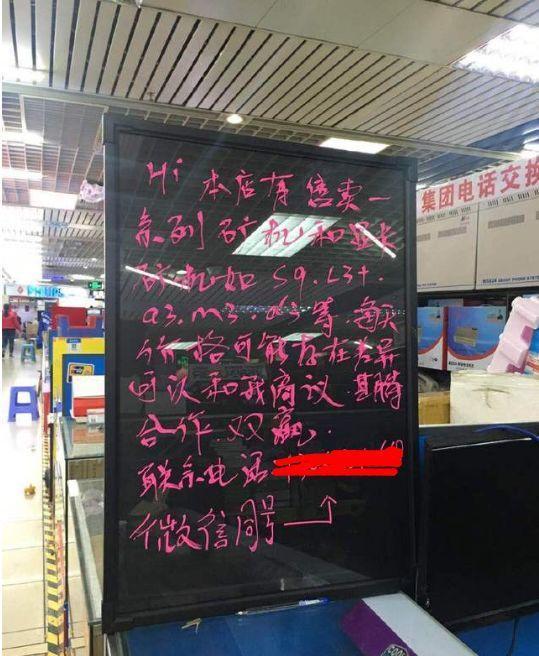 Hi 本店有售卖一
系列矿机和显卡
矿机如 S9.L3+.
a3.m3.等.每天
价格可能存在差异
可以和我商议.期待
合作.双赢.
联系电话
微信同号
集团电话交换